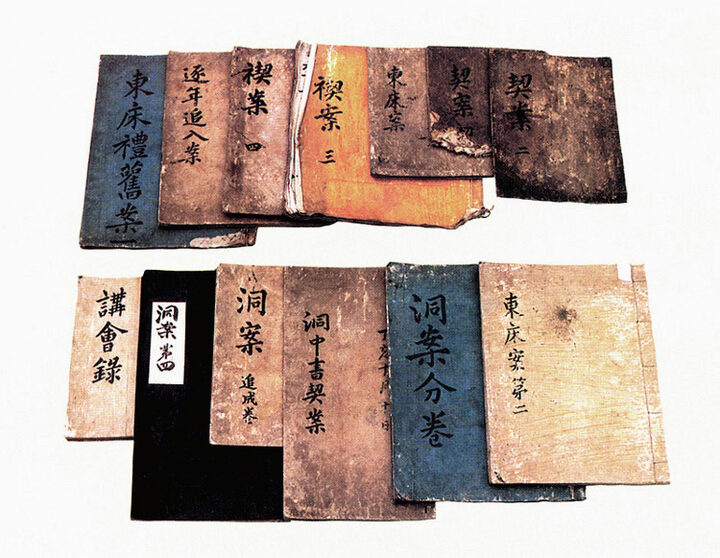 東床禮舊案一
逐年追入案
禊案 四
禊案 三
東床案
契案 四
契案 二
講會錄
洞案 第四
洞案 追成卷
洞中書契案
洞案分卷
東床案第二